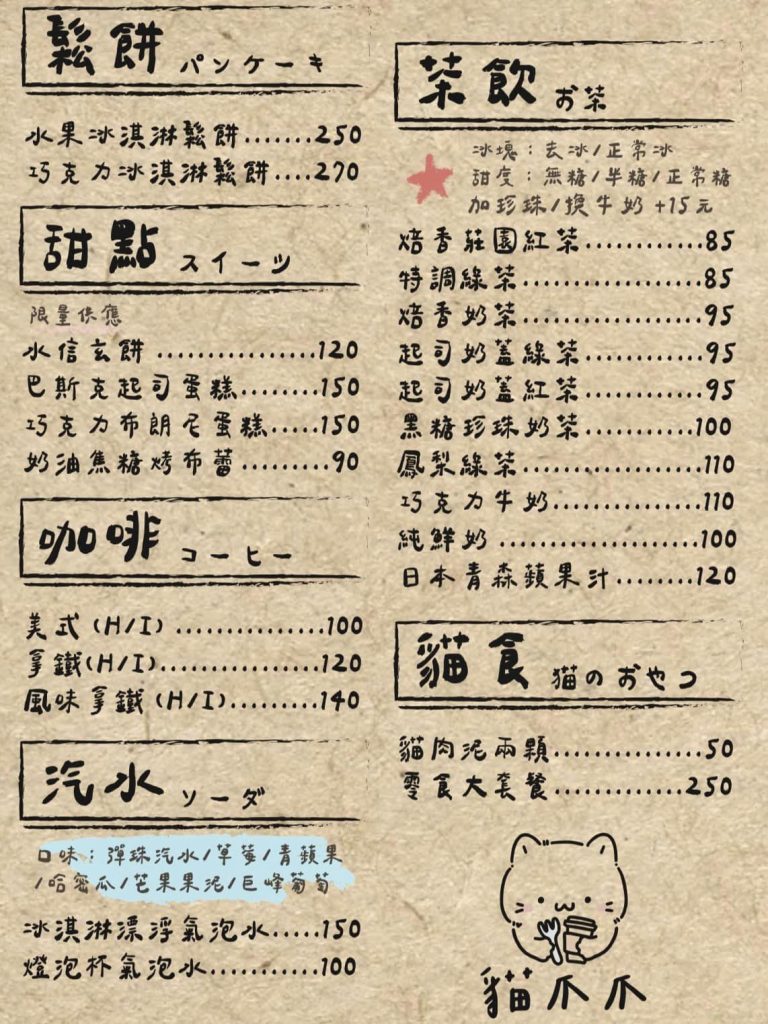 鬆餅 パンケーキ
水果冰淇淋鬆餅.......250
巧克力冰淇淋鬆餅....270
甜點 スイーツ
限量供應
水信玄餅 ................120
巴斯克起司蛋糕........150
巧克力布朗尼蛋糕.....150
奶油焦糖烤布蕾.........90
咖啡 コーヒー
美式(H/I) ...............100
拿鐵(H/I)................120
風味拿鐵(H/I).........140
汽水 ソーダ
口味：彈珠汽水/草莓/青蘋果
/哈密瓜/芒果果泥/巨峰葡萄
冰淇淋漂浮氣泡水.....150
燈泡杯氣泡水...........100
茶飲 お茶
冰塊：去冰/正常冰
甜度：無糖/半糖/正常糖
加珍珠/換牛奶+15元
焙香莊園紅茶............85
特調綠茶..................85
焙香奶茶..................95
起司奶蓋綠茶............95
起司奶蓋紅茶............95
黑糖珍珠奶茶...........100
鳳梨綠茶..................110
巧克力牛奶...............110
純鮮奶 ....................100
日本青森蘋果汁........120
貓食 猫のおやつ
貓肉泥兩顆...............50
零食大套餐.............250
貓爪爪